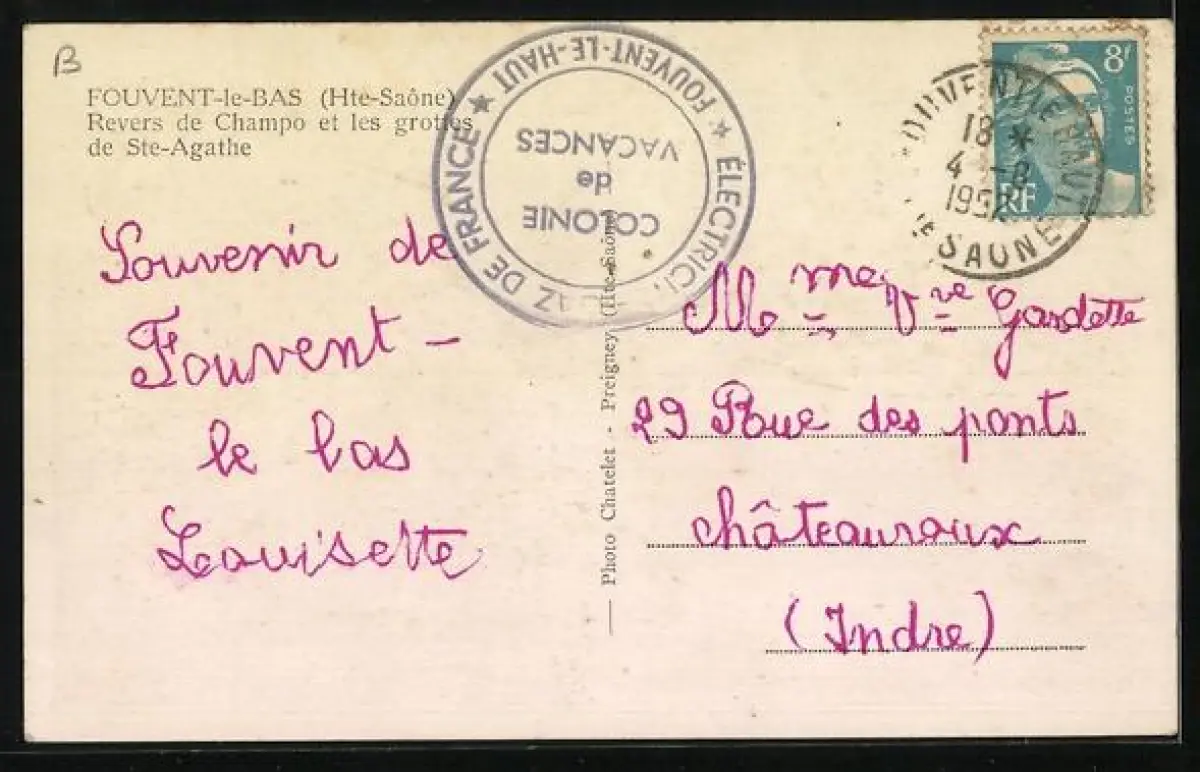 B
FOUVENT-le-BAS (Hte-Saône)
Revers de Champo et les grottes
de Ste-Agathe
★ FOUVENT-LE-HAUT ★
ÉLECTRICI
AZ DE FRANCE
COLONIE
de
VACANCES
8f
POSTES
RF
OUVENT LE HAUT
18 *
4 -8
195
SAONE
Souvenir de
Fouvent-
le bas
Louisette
— Photo Chatelet - Preigney (Hte-Saône)
Mme Vve Gardette
29 Rue des ponts
châteauroux
(Indre)